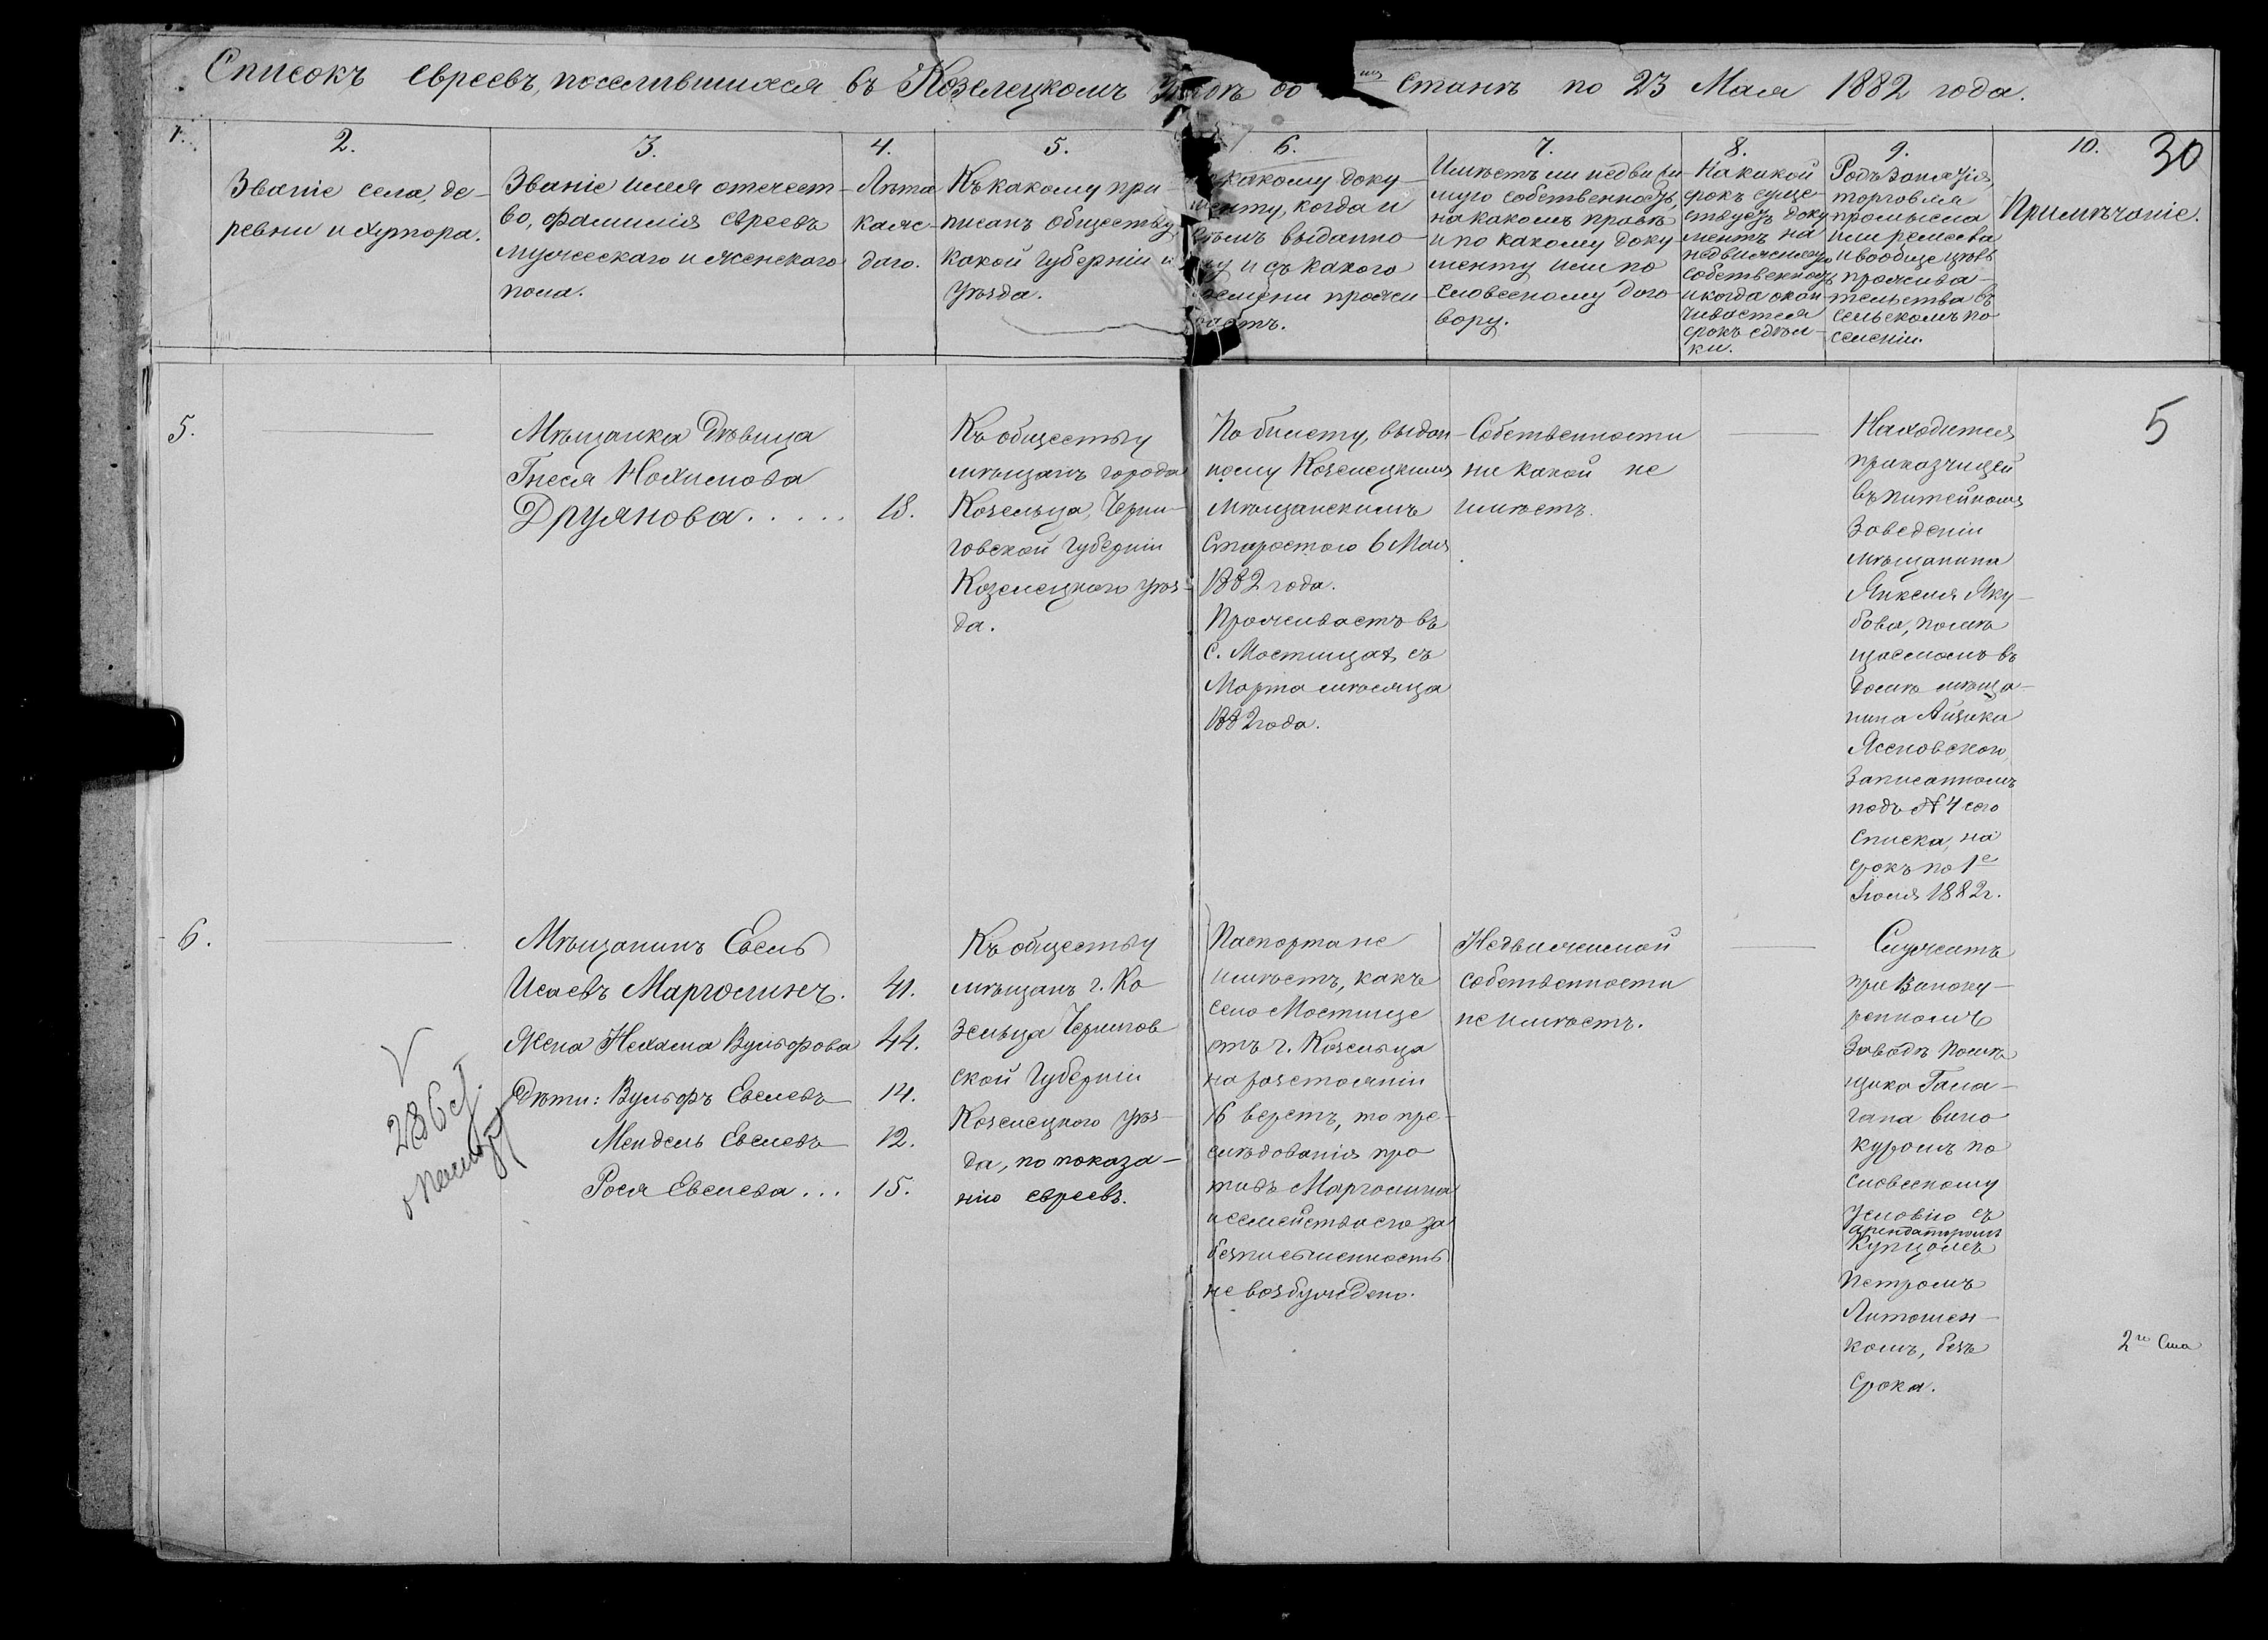 Списокъ евреевъ, поселившихся въ Козелецкомъ Уѣздѣ во станѣ по 23 Мая 1882 года.
30
1.
2.
Званіе села, де-
ревни и хутора.
3.
Званіе имя отечест-
во, фамилія евреевъ
мужескаго и женскаго
пола.
4.
Лѣта
каж-
даго.
5.
Къ какому при-
писанъ обществу
какой губерніи и
уѣзда.
6.
какому доку-
менту, когда и
кѣмъ выданно-
му и съ какого
времени прожи-
ваетъ.
7.
Имѣетъ ли недвижи-
мую собственность,
на какомъ правѣ
и по какому доку-
менту или по
словесному дого-
вору.
8.
На какой
срокъ суще-
ствуетъ доку
ментъ на
недвижимую
собственность
и когда окан-
чивается
срокъ сдѣл-
ки.
9.
Родъ занятія,
торговля
промысла
или ремесла
и вообще цѣль
прожива-
тельства въ
сельскомъ по
селеніи.
10.
Примѣчаніе.
5.
Мѣщанка Дѣвица
Гнеся Нохимова
Друянова . . . . .
18.
Къ обществу
мѣщанъ города
Козельца, Черни-
говской губерніи
Козелецкаго уѣз-
да.
По билету, выдан-
ному Козелецкимъ
Мѣщанскимъ
Старостою 6 Мая
1882 года.
Проживаетъ въ
с. Мостищахъ съ
Марта мѣсяца
1882 года.
Собственности
ни какой не
имѣетъ.
Находится
приказчицей
въ питейномъ
заведеніи
мѣщанина
Янкеля Яку-
бова, помѣ
щаемомъ въ
домѣ мѣща-
нина Айзика
Ясновскаго,
записанномъ
подъ № 4 сего
списка, на
срокъ по 1е
Іюля 1882 г.
5
6.
Мѣщанинъ Евель
Исаевъ Марголинъ.
41.
Жена Нехама Вульфова
44.
Дѣти: Вульфъ Евелевъ
14.
Мендель Евелевъ
12.
Рося Евелева . . .
15.
286
Къ обществу
мѣщанъ г. Ко
зельца Чернигов
ской Губерніи
Козелецкаго уѣз-
да, по показа-
нію евреевъ.
Паспорта не
имѣетъ, какъ
село Мостище
отъ г. Козельца
на разстояніи
16 верстъ, то пре-
слѣдованія про
тивъ Марголина
и семейства его за
безписьменность
не возбуждено.
Недвижимой
собственности
не имѣетъ.
Служитъ
при Виноку-
ренномъ
заводѣ помѣ
щика Гала-
гана вино
куромъ по
словесному
условію съ
арендаторомъ
Купцомъ
Петромъ
Литошен-
комъ, безъ
срока.
2го Ста